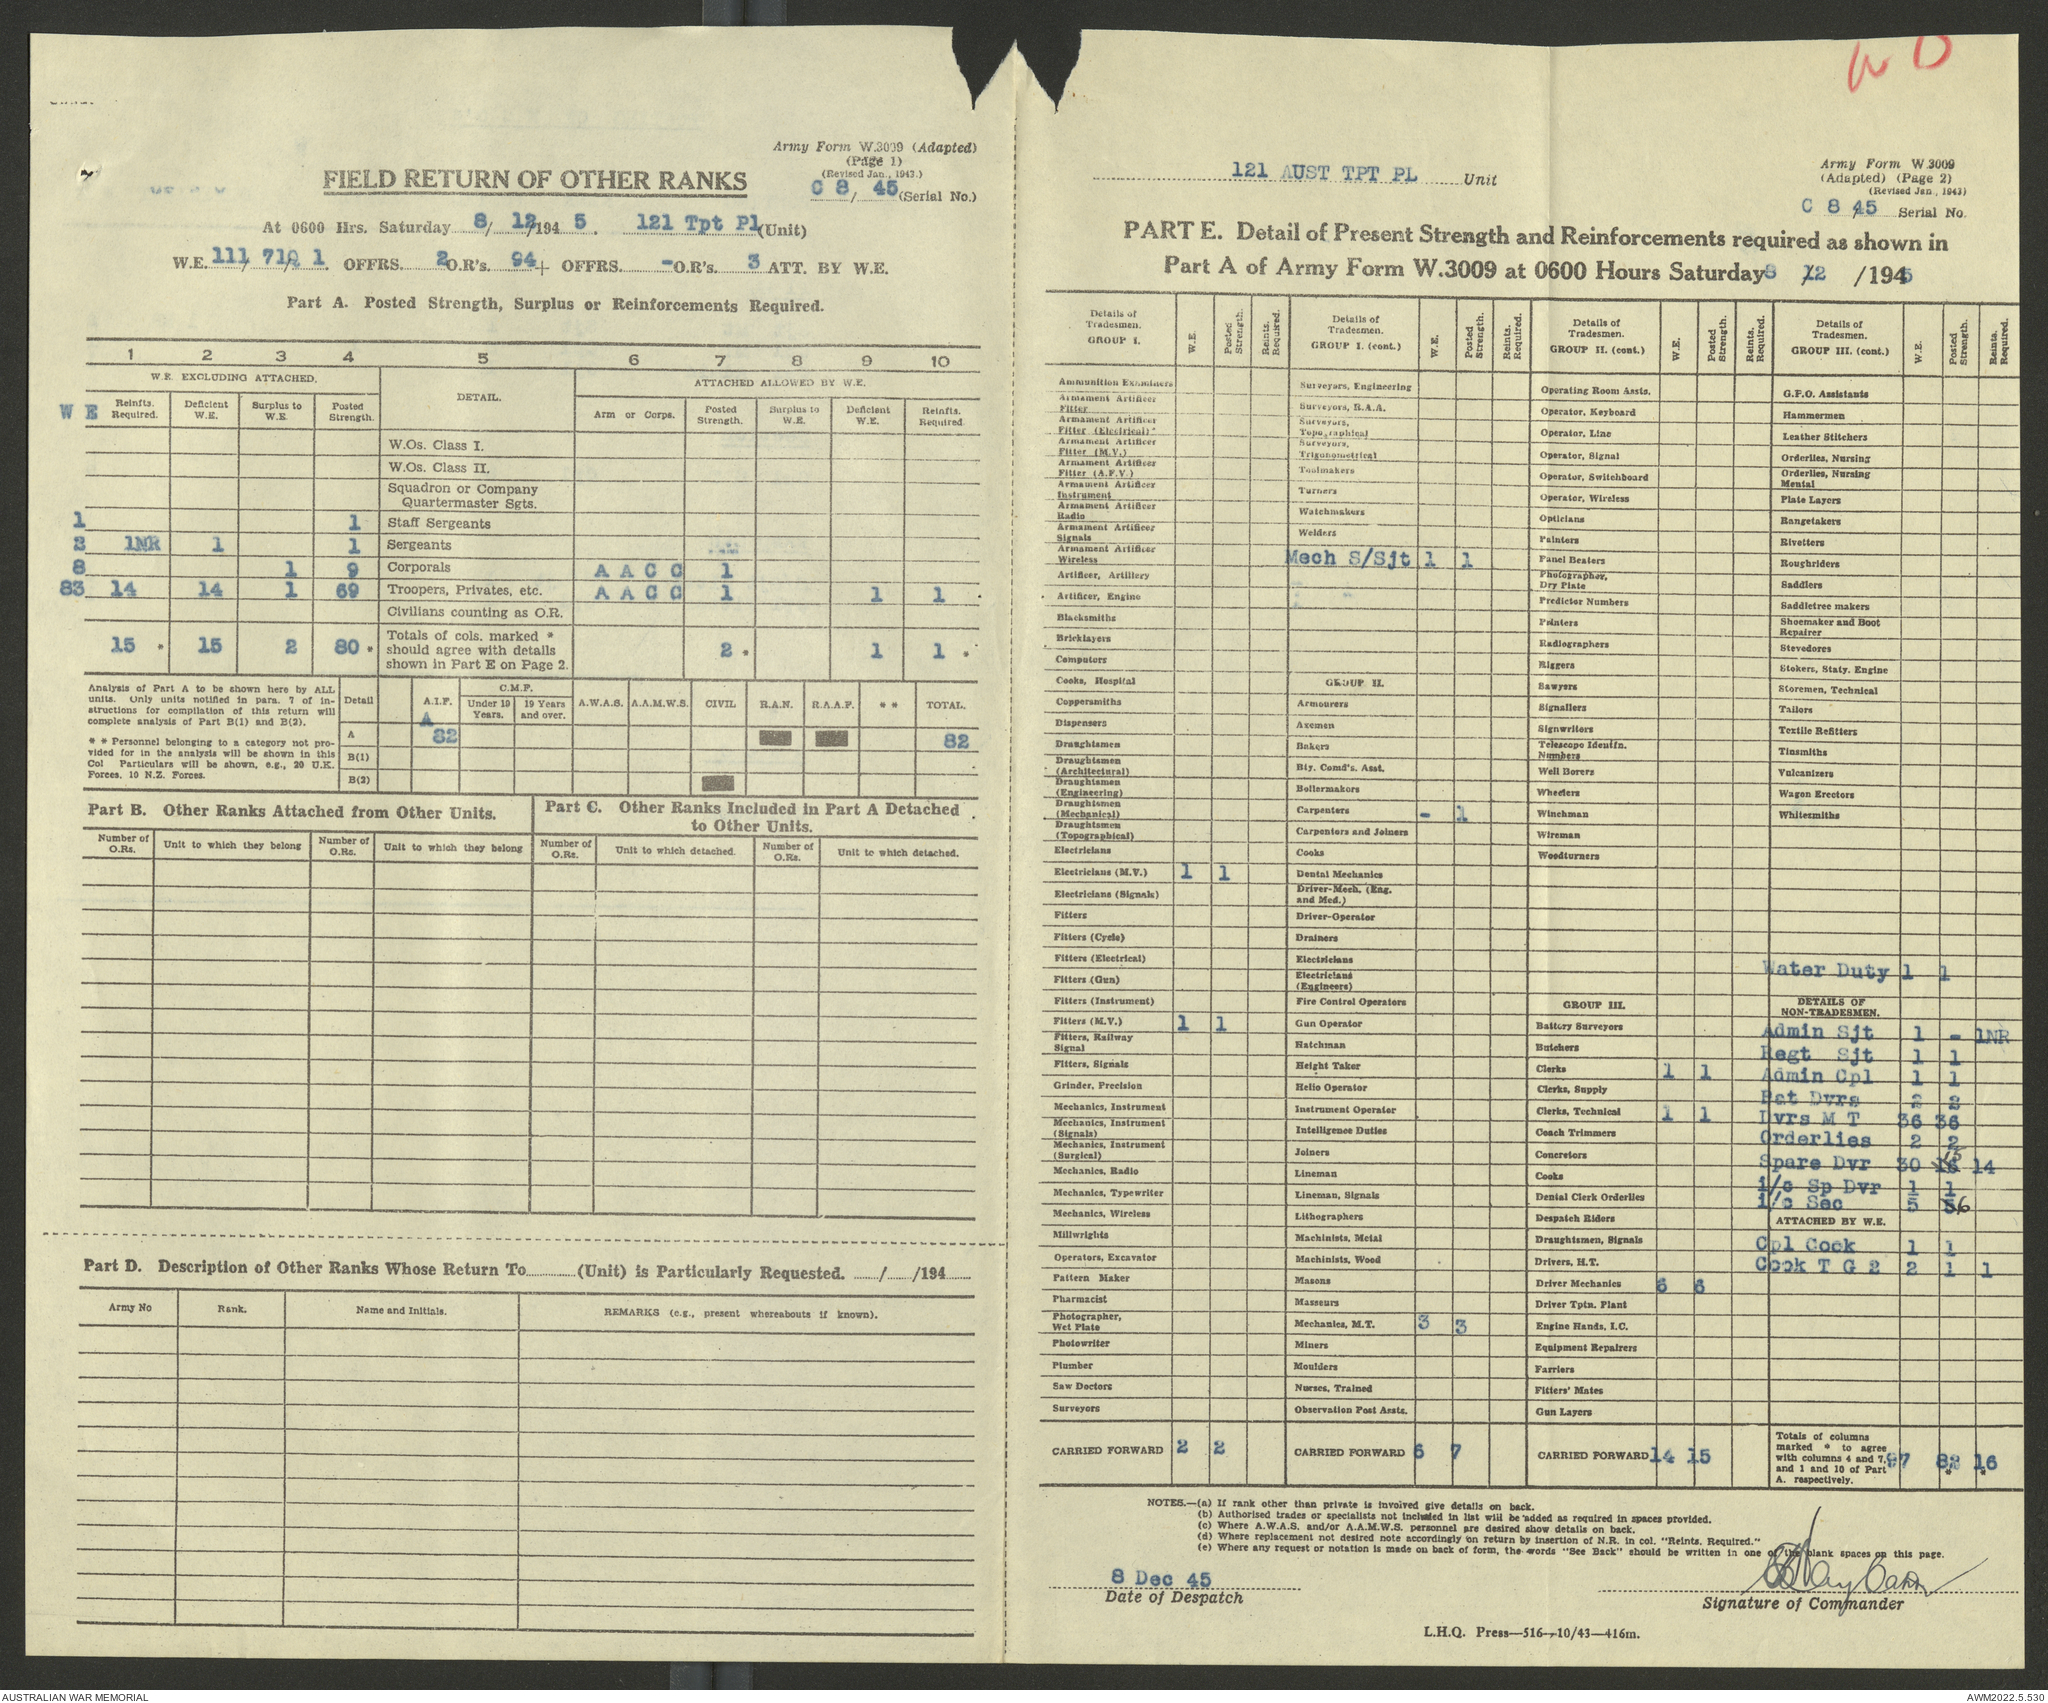 W D
Army Form W.3009 (Adapted)
(Page 1)
(Revised Jan., 1943.)
FIELD RETURN OF OTHER RANKS
C 8/ 45 (Serial No.)
At 0600 Hrs. Saturday 8/ 12/194 5. 121 Tpt Pl (Unit)
W.E. 111/ 71/ 1 OFFRS. 2 O.R's. 94 + OFFRS. - O.R's. 3 ATT. BY W.E.
Part A. Posted Strength, Surplus or Reinforcements Required.
1 2 3 4 5 6 7 8 9 10
W.E. EXCLUDING ATTACHED. DETAIL. ATTACHED ALLOWED BY W.E.
W E Reinfts. Required. Deficient W.E. Surplus to W.E. Posted Strength. Arm or Corps. Posted Strength. Surplus to W.E. Deficient W.E. Reinfts. Required.
W.Os. Class I.
W.Os. Class II.
Squadron or Company
Quartermaster Sgts.
1 1 Staff Sergeants
2 1NR 1 1 Sergeants
8 1 9 Corporals A A C C 1
83 14 14 1 69 Troopers, Privates, etc. A A C C 1 1 1
Civilians counting as O.R.
15 * 15 2 80 * Totals of cols. marked * should agree with details shown in Part E on Page 2. 2 * 1 1 *
Analysis of Part A to be shown here by ALL
units. Only units notified in para. 7 of in-
structions for compilation of this return will
complete analysis of Part B(1) and B(2).
* * Personnel belonging to a category not pro-
vided for in the analysis will be shown in this
Col Particulars will be shown, e.g., 20 U.K.
Forces, 10 N.Z. Forces.
Detail A.I.F. C.M.F. Under 19 Years. 19 Years and over. A.W.A.S. A.A.M.W.S. CIVIL R.A.N. R.A.A.F. * * TOTAL.
A
A 82 82
B(1)
B(2)
Part B. Other Ranks Attached from Other Units.
Part C. Other Ranks Included in Part A Detached
to Other Units.
Number of O.Rs. Unit to which they belong Number of O.Rs. Unit to which they belong Number of O.Rs. Unit to which detached. Number of O.Rs. Unit to which detached.
Part D. Description of Other Ranks Whose Return To (Unit) is Particularly Requested. / /194
Army No Rank. Name and Initials. REMARKS (e.g., present whereabouts if known).
121 AUST TPT PL Unit
Army Form W.3009
(Adapted) (Page 2)
(Revised Jan., 1943)
C 8/45 Serial No.
PART E. Detail of Present Strength and Reinforcements required as shown in
Part A of Army Form W.3009 at 0600 Hours Saturday 8 /12 /1945
Details of Tradesmen. GROUP I. W.E. Posted Strength. Reints. Required.
Ammunition Examiners
Armament Artificer Fitter
Armament Artificer Fitter (Electrical)
Armament Artificer Fitter (M.V.)
Armament Artificer Fitter (A.F.V.)
Armament Artificer Instrument
Armament Artificer Radio
Armament Artificer Signals
Armament Artificer Wireless
Artificer, Artillery
Artificer, Engine
Blacksmiths
Bricklayers
Computors
Cooks, Hospital
Coppersmiths
Dispensers
Draughtsmen
Draughtsmen (Architectural)
Draughtsmen (Engineering)
Draughtsmen (Mechanical)
Draughtsmen (Topographical)
Electricians
Electricians (M.V.) 1 1
Electricians (Signals)
Fitters
Fitters (Cycle)
Fitters (Electrical)
Fitters (Gun)
Fitters (Instrument)
Fitters (M.V.) 1 1
Fitters, Railway Signal
Fitters, Signals
Grinder, Precision
Mechanics, Instrument
Mechanics, Instrument (Signals)
Mechanics, Instrument (Surgical)
Mechanics, Radio
Mechanics, Typewriter
Mechanics, Wireless
Millwrights
Operators, Excavator
Pattern Maker
Pharmacist
Photographer, Wet Plate
Photowriter
Plumber
Saw Doctors
Surveyors
CARRIED FORWARD 2 2
Details of Tradesmen. GROUP I. (cont.) W.E. Posted Strength. Reints. Required.
Surveyors, Engineering
Surveyors, R.A.A.
Surveyors, Topographical
Surveyors, Trigonometrical
Toolmakers
Turners
Watchmakers
Welders
Mech S/Sjt 1 1
GROUP II.
Armourers
Axemen
Bakers
Bty. Comd's. Asst.
Boilermakers
Carpenters - 1
Carpenters and Joiners
Cooks
Dental Mechanics
Driver-Mech. (Eng. and Med.)
Driver-Operator
Drainers
Electricians
Electricians (Engineers)
Fire Control Operators
Gun Operator
Hatchman
Height Taker
Helio Operator
Instrument Operator
Intelligence Duties
Joiners
Lineman
Lineman, Signals
Lithographers
Machinists, Metal
Machinists, Wood
Masons
Masseurs
Mechanics, M.T. 3 3
Miners
Moulders
Nurses, Trained
Observation Post Assts.
CARRIED FORWARD 6 7
Details of Tradesmen. GROUP II. (cont.) W.E. Posted Strength. Reints. Required.
Operating Room Assts.
Operator, Keyboard
Operator, Line
Operator, Signal
Operator, Switchboard
Operator, Wireless
Opticians
Painters
Panel Beaters
Photographer, Dry Plate
Predictor Numbers
Printers
Radiographers
Riggers
Sawyers
Signallers
Signwriters
Telescope Identfn. Numbers
Well Borers
Wheelers
Winchman
Wireman
Woodturners
GROUP III.
Battery Surveyors
Butchers
Clerks 1 1
Clerks, Supply
Clerks, Technical 1 1
Coach Trimmers
Concretors
Cooks
Dental Clerk Orderlies
Despatch Riders
Draughtsmen, Signals
Drivers, H.T.
Driver Mechanics 6 6
Driver Tptn. Plant
Engine Hands, I.C.
Equipment Repairers
Farriers
Fitters' Mates
Gun Layers
CARRIED FORWARD 14 15
Details of Tradesmen. GROUP III. (cont.) W.E. Posted Strength. Reints. Required.
G.P.O. Assistants
Hammermen
Leather Stitchers
Orderlies, Nursing
Orderlies, Nursing Mental
Plate Layers
Rangetakers
Rivetters
Roughriders
Saddlers
Saddletree makers
Shoemaker and Boot Repairer
Stevedores
Stokers, Staty. Engine
Storemen, Technical
Tailors
Textile Refitters
Tinsmiths
Vulcanizers
Wagon Erectors
Whitesmiths
Water Duty 1 1
DETAILS OF NON-TRADESMEN.
Admin Sjt 1 - 1NR
Regt Sjt 1 1
Admin Cpl 1 1
Bat Dvrs 2 2
Dvrs M T 36 36
Orderlies 2 2
Spare Dvr 30 16 15 14
i/c Sp Dvr 1 1
i/c Sec 5 5 6
ATTACHED BY W.E.
Cpl Cook 1 1
Cook T G 2 2 1 1
Totals of columns marked * to agree with columns 4 and 7, and 1 and 10 of Part A. respectively. 97 82 * 16 *
NOTES.—(a) If rank other than private is involved give details on back.
(b) Authorised trades or specialists not included in list will be added as required in spaces provided.
(c) Where A.W.A.S. and/or A.A.M.W.S. personnel are desired show details on back.
(d) Where replacement not desired note accordingly on return by insertion of N.R. in col. "Reints. Required."
(e) Where any request or notation is made on back of form, the words "See Back" should be written in one of the blank spaces on this page.
8 Dec 45
Date of Despatch
Signature of Commander
L.H.Q. Press—516—10/43—416m.
AUSTRALIAN WAR MEMORIAL
AWM2022.5.530